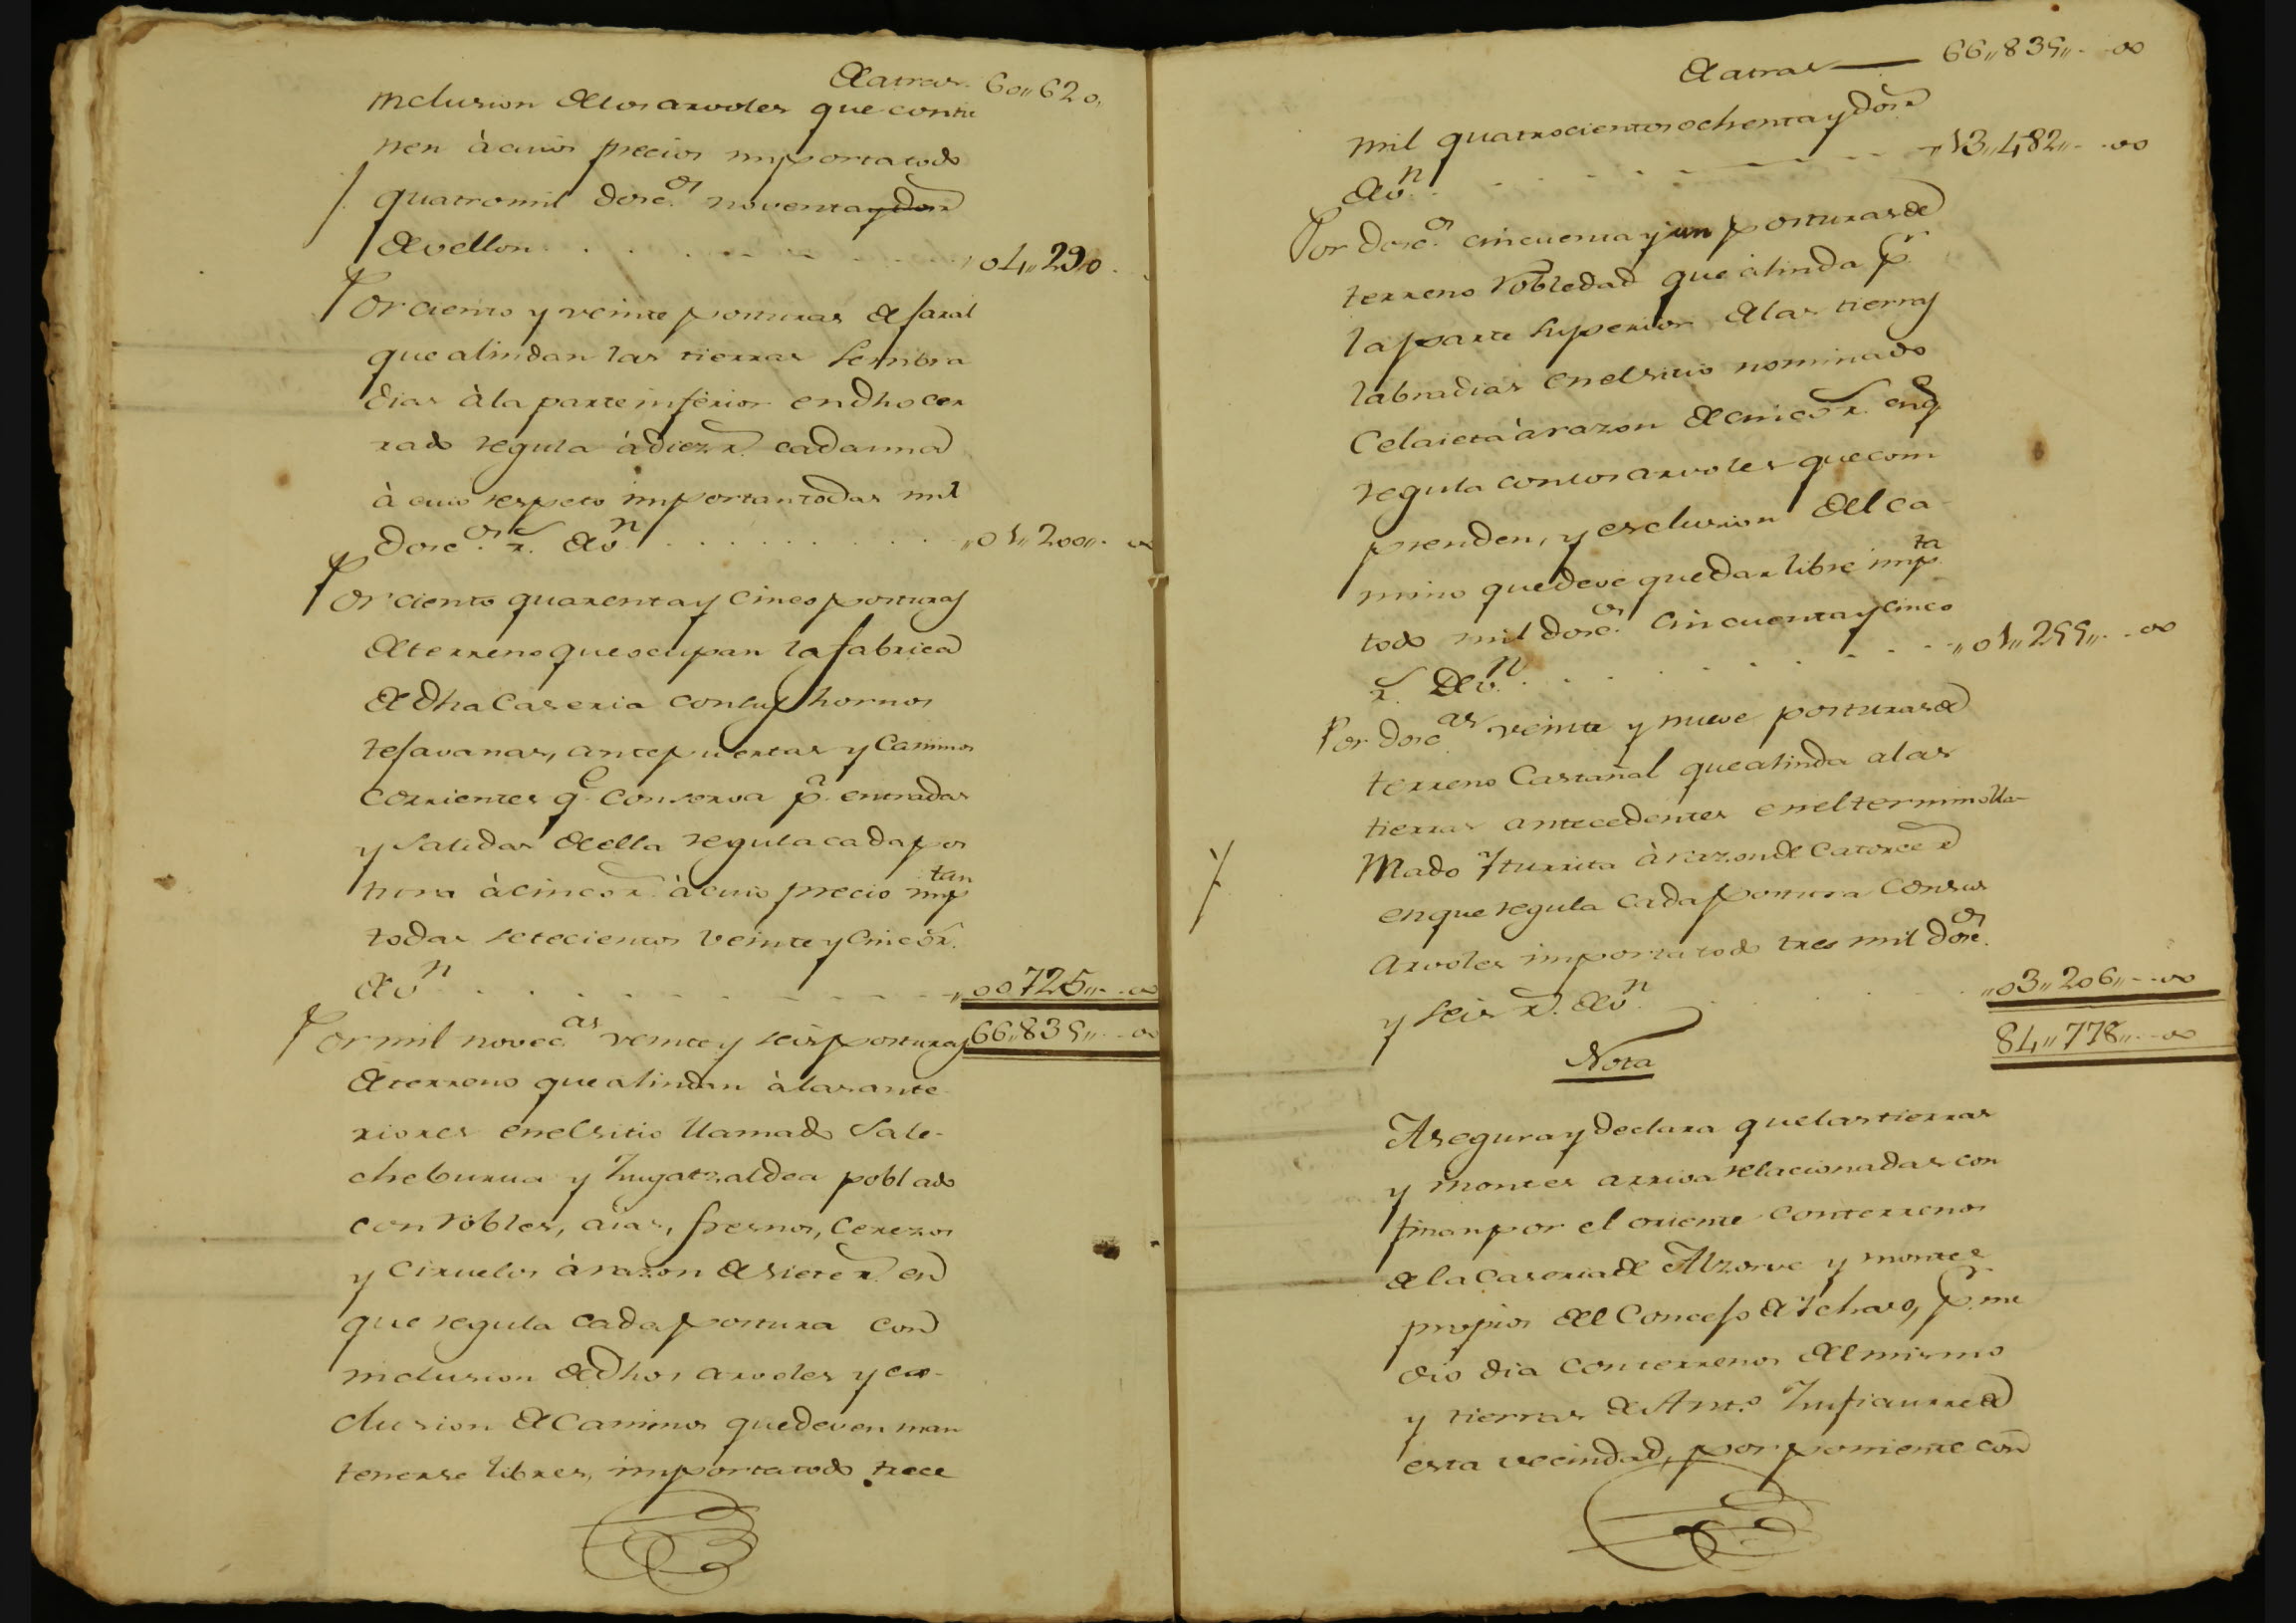 De atras 60,,620,,
inclusion de los arvoles que contie
nen à cuios precios importa todo
quatro mil dosc.os noventa y dos r
de vellon . . . . . . . . 04,,290
Por ciento y veinte posturas de jaral
que alindan las tierras sembra
dias à la parte inferior en dho cer
rado regula à diez r.s cada una
à cuio respeto importan todas mil
dosc.os r.s de v.n . . . . . . . . ,,01,,200,,. . 00
Por ciento quarenta y cinco posturas
de terreno que ocupan la fabrica
de dha Caseria con sus hornos
resavanas, antepuertas y Caminos
corrientes q.e conserva p.a entradas
y salidas de ella regula cada pos
tura à cinco r.s à cuio precio imp.tan
todas setecientos veinte y cinco r.s
de v.n . . . . . . . . ,,00725,,. . 00
Por mil novec.as veinte y seis posturas 66,,835,,. . 00
de terreno que alindan à las ante
riores en el sitio llamado Sale-
cheburua y Zugatzaldea poblado
con robles, aias, fresnos, Cerezos
y Ciruelos à razon de siete r.s en
que regula cada postura con
inclusion de dhos arvoles y ex-
clusion de Caminos que deven man
tenerse libres, importa todo trece
De atras 66,,835,,. . 00
mil quatrocientos ochenta y dos r.s
de v.n . . . . . . . . 13,,482,,. . 00
Por dosc.os cincuenta y un posturas de
terreno robledad que alinda p.r
la parte superior de las tierras
labradias en el sitio nominado
Celaieta à razon de cinco r.s en q.e
regula con los arvoles que com
prenden, y esclusion del ca
mino que deve quedar libre imp.ta
todo mil dosc.os cincuenta y cinco
r.s de v.n . . . . . . . . ,,01,,255,,. . 00
Por dosc.as veinte y nueve posturas de
terreno Castañal que alinda a las
tierras antecedentes en el termino lla-
mado Yturrita à razon de Catorce r.s
en que regula cada postura con sus
arvoles importa todo tres mil dosc.os
y seis r.s de v.n . . . . ,,03,,206,,. . 00
84,,778,,. . 00
Nota
Asegura y declara que las tierras
y montes arriva relacionadas con
finan por el oriente con terrenos
de la Caseria de Alzorve y montes
propios del Concejo de Ychaso, p.r me
dio dia con terrenos del mismo
y tierras de Ant.o Insaurre de
esta vecindad, por poniente con